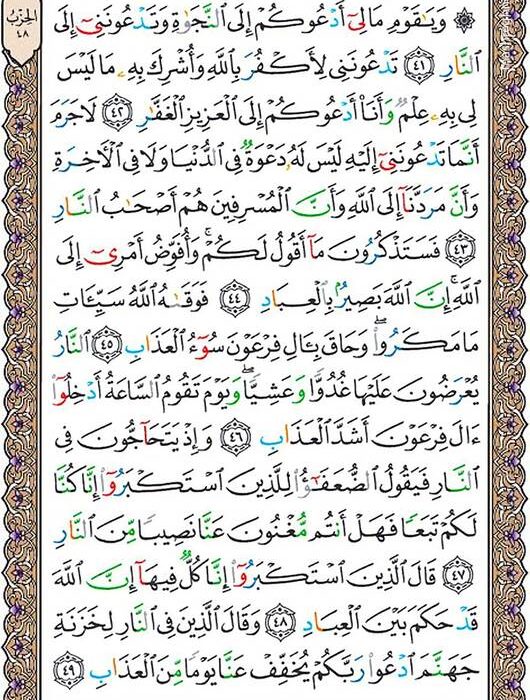 الحزب
٤٨
۞ وَيَٰقَوْمِ مَا لِىٓ أَدْعُوكُمْ إِلَى ٱلنَّجَوٰةِ وَتَدْعُونَنِىٓ إِلَى
ٱلنَّارِ ٤١ تَدْعُونَنِى لِأَكْفُرَ بِٱللَّهِ وَأُشْرِكَ بِهِۦ مَا لَيْسَ
لِى بِهِۦ عِلْمٌ وَأَنَا۠ أَدْعُوكُمْ إِلَى ٱلْعَزِيزِ ٱلْغَفَّٰرِ ٤٢ لَا جَرَمَ
أَنَّمَا تَدْعُونَنِىٓ إِلَيْهِ لَيْسَ لَهُۥ دَعْوَةٌ فِى ٱلدُّنْيَا وَلَا فِى ٱلْءَاخِرَةِ
وَأَنَّ مَرَدَّنَآ إِلَى ٱللَّهِ وَأَنَّ ٱلْمُسْرِفِينَ هُمْ أَصْحَٰبُ ٱلنَّارِ
٤٣ فَسَتَذْكُرُونَ مَآ أَقُولُ لَكُمْ ۚ وَأُفَوِّضُ أَمْرِىٓ إِلَى
ٱللَّهِ ۚ إِنَّ ٱللَّهَ بَصِيرٌۢ بِٱلْعِبَادِ ٤٤ فَوَقَىٰهُ ٱللَّهُ سَيِّـَٔاتِ
مَا مَكَرُوا۟ ۖ وَحَاقَ بِـَٔالِ فِرْعَوْنَ سُوٓءُ ٱلْعَذَابِ ٤٥ ٱلنَّارُ
يُعْرَضُونَ عَلَيْهَا غُدُوًّا وَعَشِيًّا ۖ وَيَوْمَ تَقُومُ ٱلسَّاعَةُ أَدْخِلُوٓا۟
ءَالَ فِرْعَوْنَ أَشَدَّ ٱلْعَذَابِ ٤٦ وَإِذْ يَتَحَآجُّونَ فِى
ٱلنَّارِ فَيَقُولُ ٱلضُّعَفَٰٓؤُا۟ لِلَّذِينَ ٱسْتَكْبَرُوٓا۟ إِنَّا كُنَّا
لَكُمْ تَبَعًا فَهَلْ أَنتُم مُّغْنُونَ عَنَّا نَصِيبًا مِّنَ ٱلنَّارِ
٤٧ قَالَ ٱلَّذِينَ ٱسْتَكْبَرُوٓا۟ إِنَّا كُلٌّ فِيهَآ إِنَّ ٱللَّهَ
قَدْ حَكَمَ بَيْنَ ٱلْعِبَادِ ٤٨ وَقَالَ ٱلَّذِينَ فِى ٱلنَّارِ لِخَزَنَةِ
جَهَنَّمَ ٱدْعُوا۟ رَبَّكُمْ يُخَفِّفْ عَنَّا يَوْمًا مِّنَ ٱلْعَذَابِ ٤٩